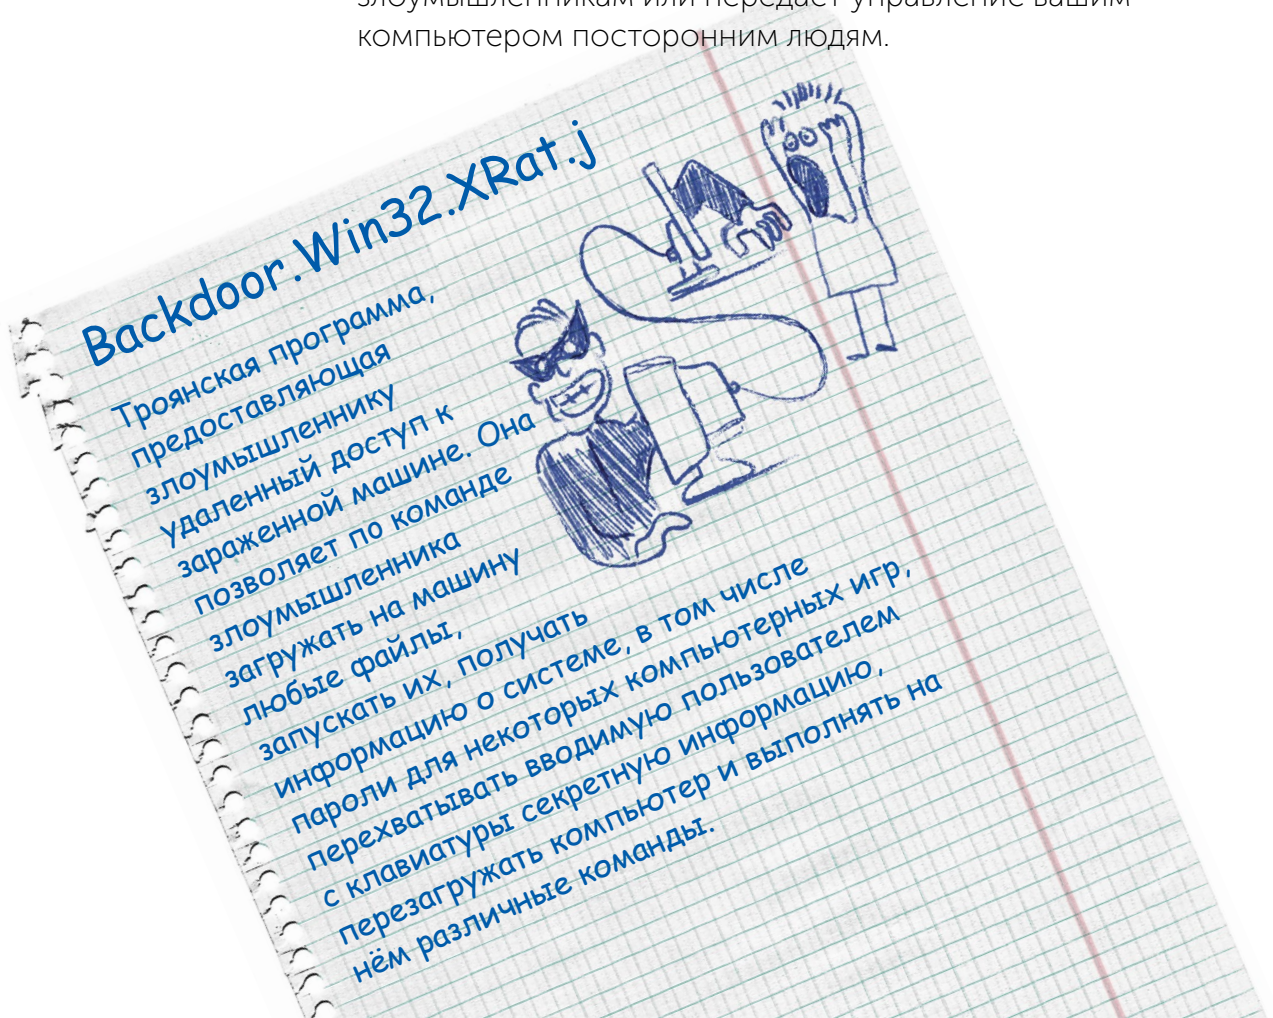 злоумышленникам или передает управление вашим
компьютером посторонним людям.
Backdoor.Win32.XRat.j
Троянская программа,
предоставляющая
злоумышленнику
удаленный доступ к
зараженной машине. Она
позволяет по команде
злоумышленника
загружать на машину
любые файлы,
запускать их, получать
информацию о системе, в том числе
пароли для некоторых компьютерных игр,
перехватывать вводимую пользователем
с клавиатуры секретную информацию,
перезагружать компьютер и выполнять на
нём различные команды.